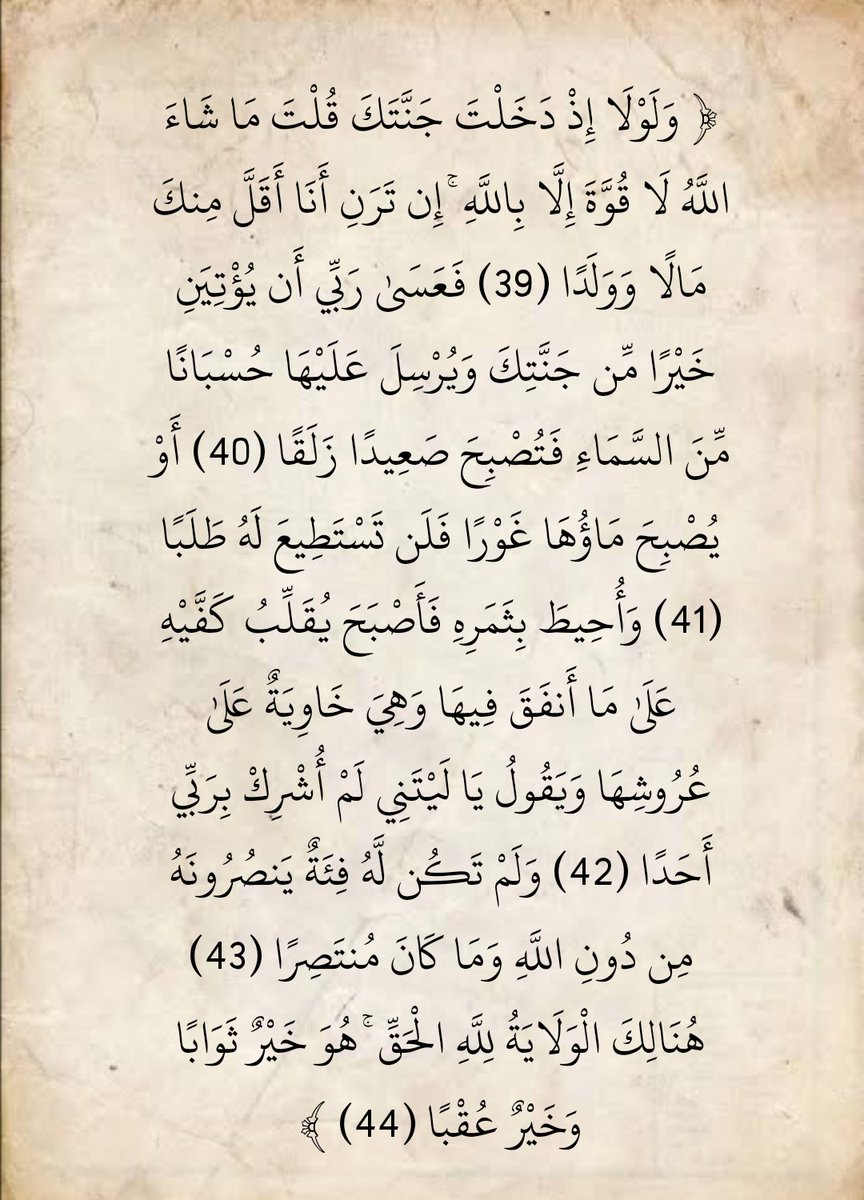 ﴿ وَلَوْلَا إِذْ دَخَلْتَ جَنَّتَكَ قُلْتَ مَا شَاءَ
اللَّهُ لَا قُوَّةَ إِلَّا بِاللَّهِ ۚ إِن تَرَنِ أَنَا أَقَلَّ مِنكَ
مَالًا وَوَلَدًا (39) فَعَسَىٰ رَبِّي أَن يُؤْتِيَنِ
خَيْرًا مِّن جَنَّتِكَ وَيُرْسِلَ عَلَيْهَا حُسْبَانًا
مِّنَ السَّمَاءِ فَتُصْبِحَ صَعِيدًا زَلَقًا (40) أَوْ
يُصْبِحَ مَاؤُهَا غَوْرًا فَلَن تَسْتَطِيعَ لَهُ طَلَبًا
(41) وَأُحِيطَ بِثَمَرِهِ فَأَصْبَحَ يُقَلِّبُ كَفَّيْهِ
عَلَىٰ مَا أَنفَقَ فِيهَا وَهِيَ خَاوِيَةٌ عَلَىٰ
عُرُوشِهَا وَيَقُولُ يَا لَيْتَنِي لَمْ أُشْرِكْ بِرَبِّي
أَحَدًا (42) وَلَمْ تَكُن لَّهُ فِئَةٌ يَنصُرُونَهُ
مِن دُونِ اللَّهِ وَمَا كَانَ مُنتَصِرًا (43)
هُنَالِكَ الْوَلَايَةُ لِلَّهِ الْحَقِّ ۚ هُوَ خَيْرٌ ثَوَابًا
وَخَيْرٌ عُقْبًا (44) ﴾